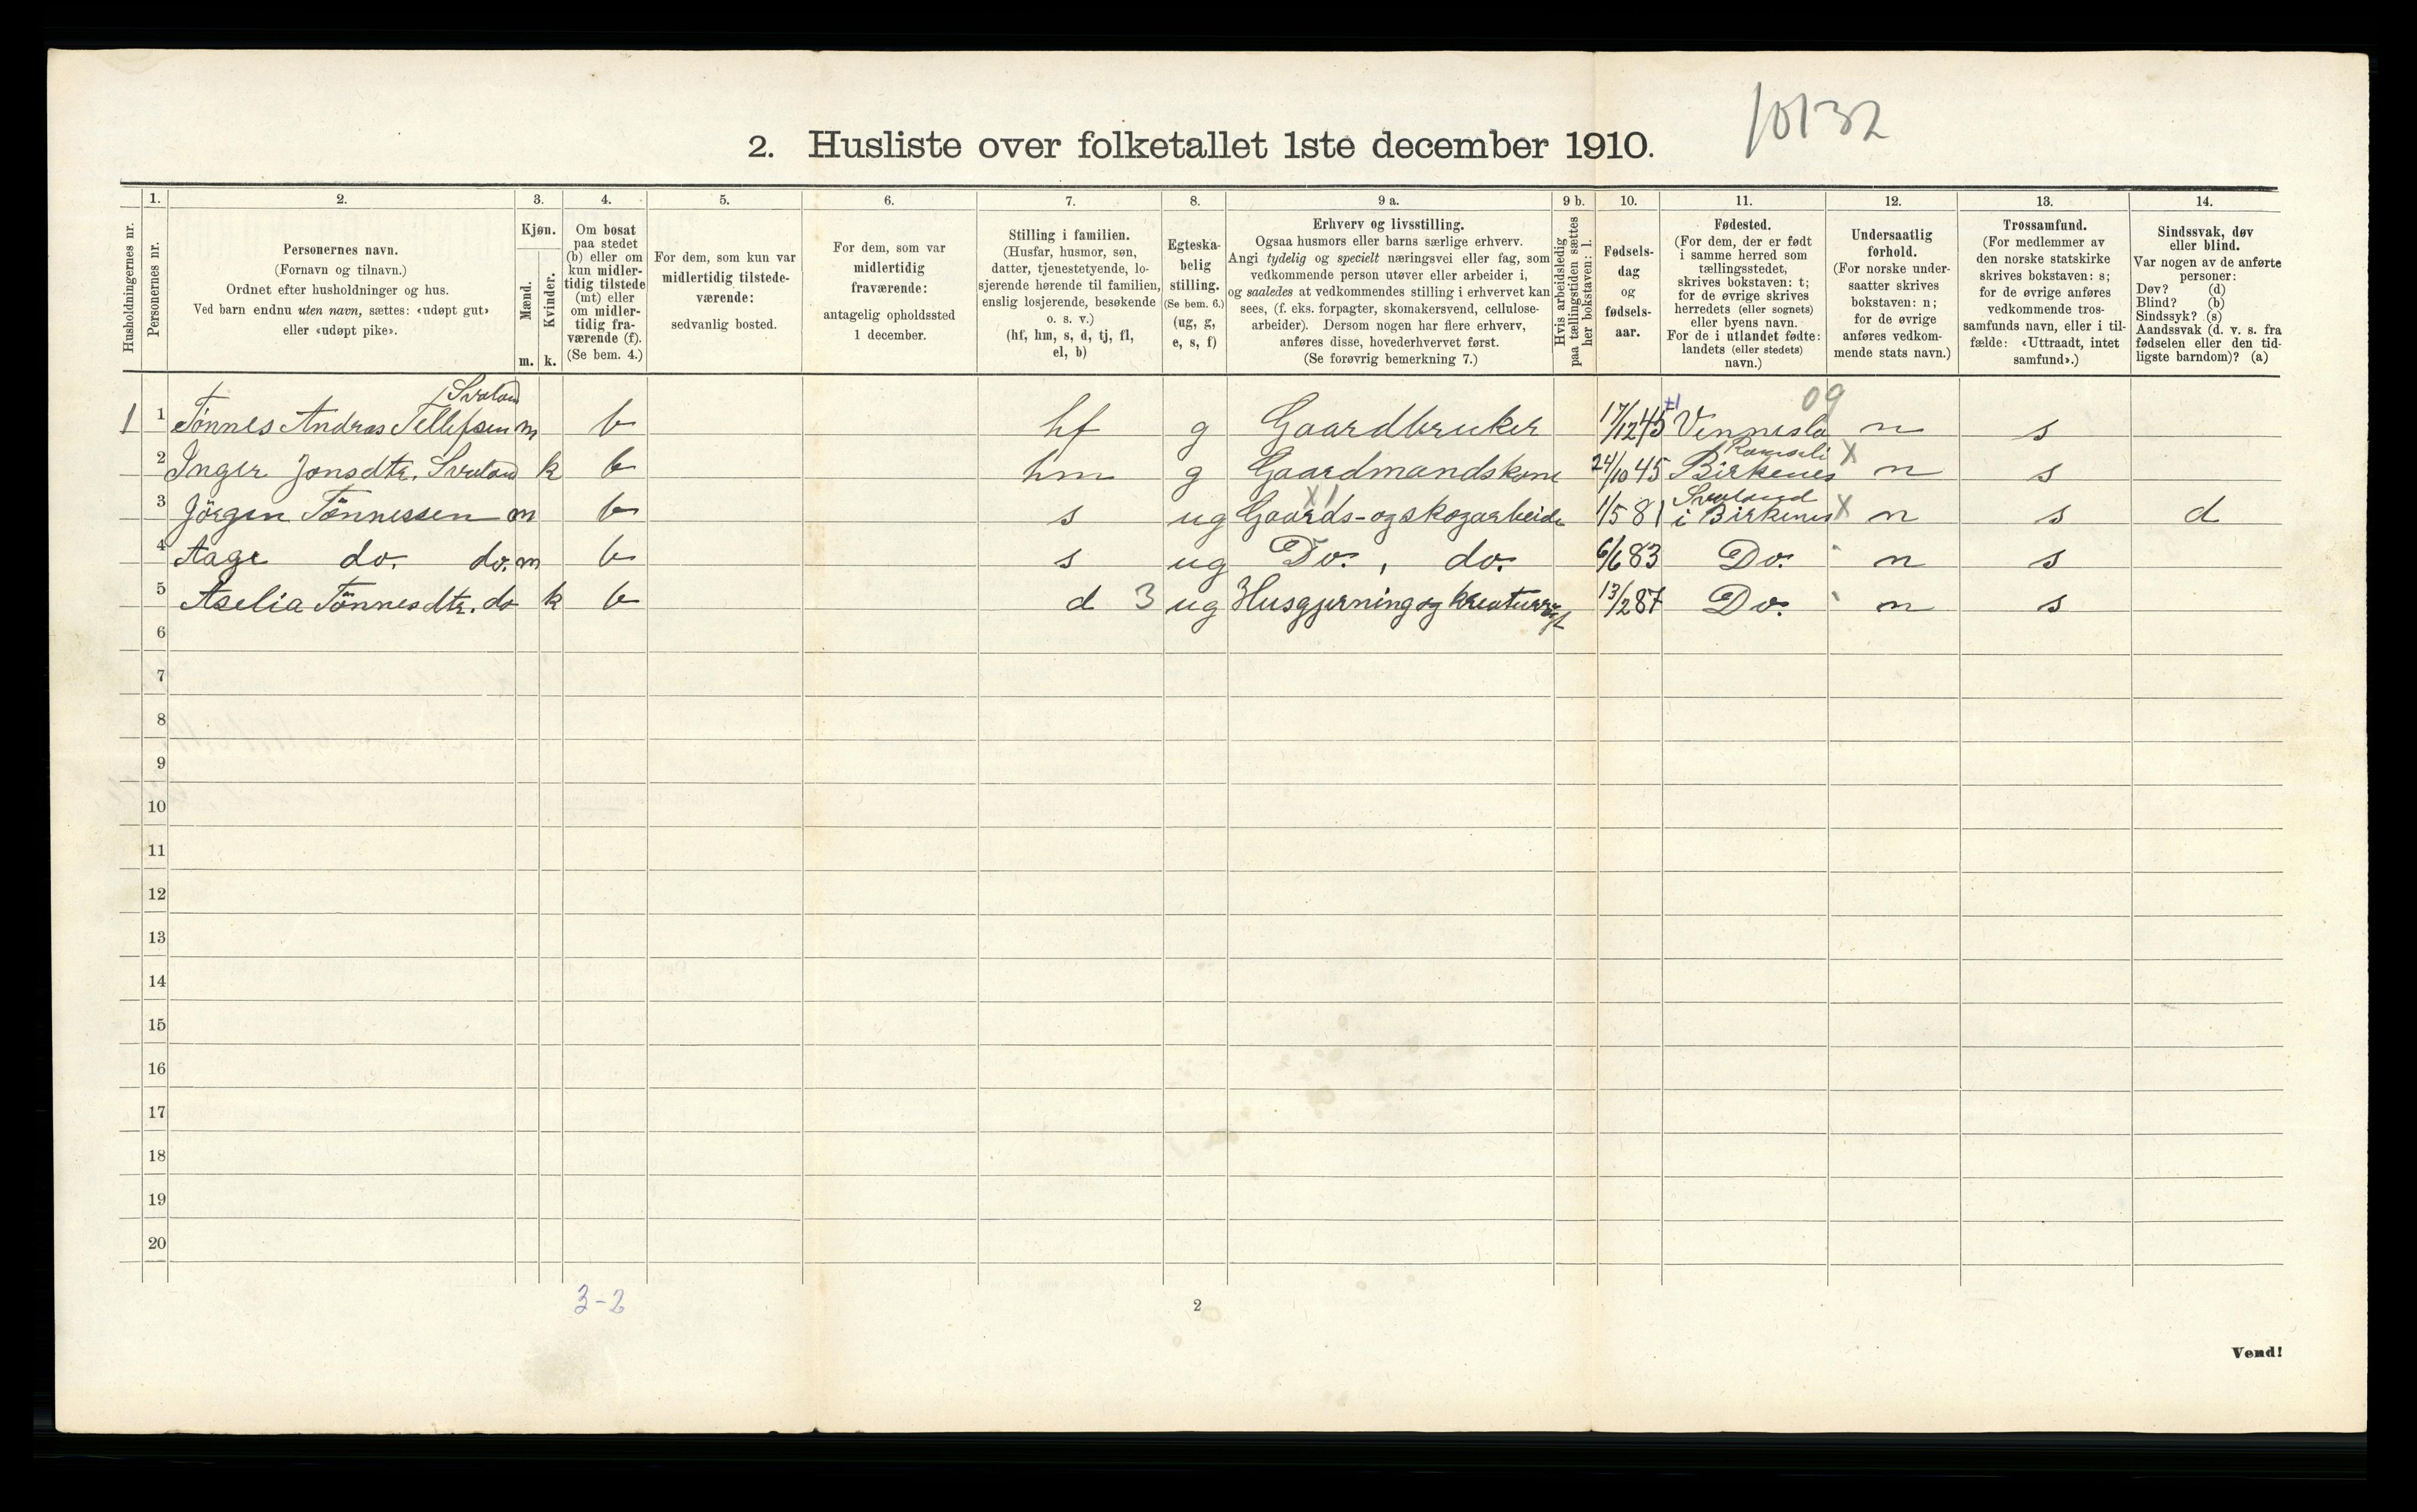 10132
2. Husliste over folketallet 1ste december 1910.
Husholdningernes nr.
1.
Personernes nr.
2.
Personernes navn.
(Fornavn og tilnavn.)
Ordnet efter husholdninger og hus.
Ved barn endnu uten navn, sættes: «udøpt gut»
eller «udøpt pike».
3.
Kjøn.
Mænd.
m.
Kvinder.
k.
4.
Om bosat
paa stedet
(b) eller om
kun midler-
tidig tilstede
(mt) eller
om midler-
tidig fra-
værende (f).
(Se bem. 4.)
5.
For dem, som kun var
midlertidig tilstede-
værende:
sedvanlig bosted.
6.
For dem, som var
midlertidig
fraværende:
antagelig opholdssted
1 december.
7.
Stilling i familien.
(Husfar, husmor, søn,
datter, tjenestetyende, lo-
sjerende hørende til familien,
enslig losjerende, besøkende
o. s. v.)
(hf, hm, s, d, tj, fl,
el, b)
8.
Egteska-
belig
stilling.
(Se bem. 6.)
(ug, g,
e, s, f)
9 a.
Erhverv og livsstilling.
Ogsaa husmors eller barns særlige erhverv.
Angi tydelig og specielt næringsvei eller fag, som
vedkommende person utøver eller arbeider i,
og saaledes at vedkommendes stilling i erhvervet kan
sees, (f. eks. forpagter, skomakersvend, cellulose-
arbeider). Dersom nogen har flere erhverv,
anføres disse, hovederhvervet først.
(Se forøvrig bemerkning 7.)
9 b.
Hvis arbeidsledig
paa tællingstiden sættes
her bokstaven: l.
10.
Fødsels-
dag
og
fødsels-
aar.
11.
Fødested.
(For dem, der er født
i samme herred som
tællingsstedet,
skrives bokstaven: t;
for de øvrige skrives
herredets (eller sognets)
eller byens navn.
For de i utlandet fødte:
landets (eller stedets)
navn.)
12.
Undersaatlig
forhold.
(For norske under-
saatter skrives
bokstaven: n;
for de øvrige
anføres vedkom-
mende stats navn.)
13.
Trossamfund.
(For medlemmer av
den norske statskirke
skrives bokstaven: s;
for de øvrige anføres
vedkommende tros-
samfunds navn, eller i til-
fælde: «Uttraadt, intet
samfund».)
14.
Sindssvak, døv
eller blind.
Var nogen av de anførte
personer:
Døv? (d)
Blind? (b)
Sindssyk? (s)
Aandssvak (d. v. s. fra
fødselen eller den tid-
ligste barndom)? (a)
Svaland 09
1 1 Tønnes Andreas Tellefsen m b hf g Gaardbruker 17/12 45 Vennesla n s
2 Inger Jonsdtr. Svaland k b hm g Gaardmandskone 24/10 45 Birkenes X n s
X 1 Svaland
3 Jörgen Tønnessen m b s ug Gaards- og skogarbeide 1/5 81 i Birkenes X n s d
4 Aage do. do. m b s ug Do. , do. 6/6 83 Do. n s
5 Aselia Tønnesdtr. do k b d 3 ug Husgjerning og kreaturrøgt 13/2 87 Do. n s
6
7
8
9
10
11
12
13
14
15
16
17
18
19
20
3-2
2
Vend!